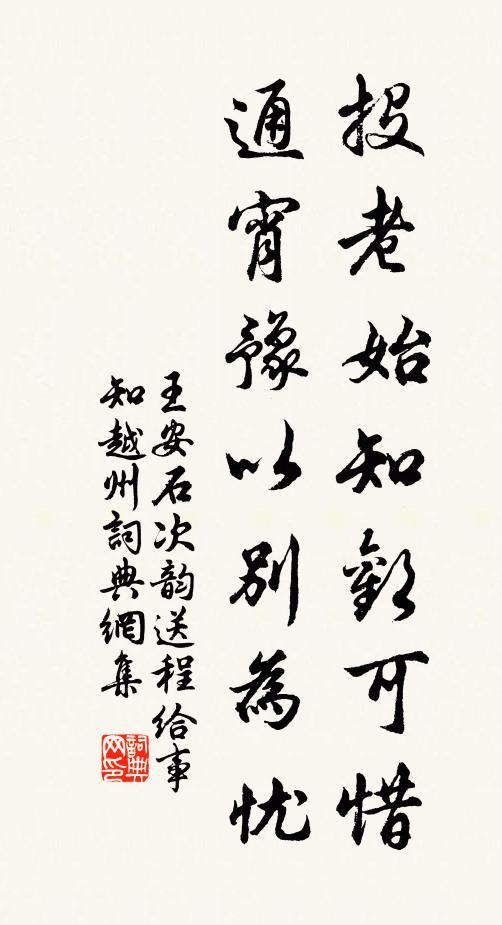 投老始知歡可惜
通宵豫以別為忧
王安石次韵送程給事
知越州詞典網集
詞典
网印